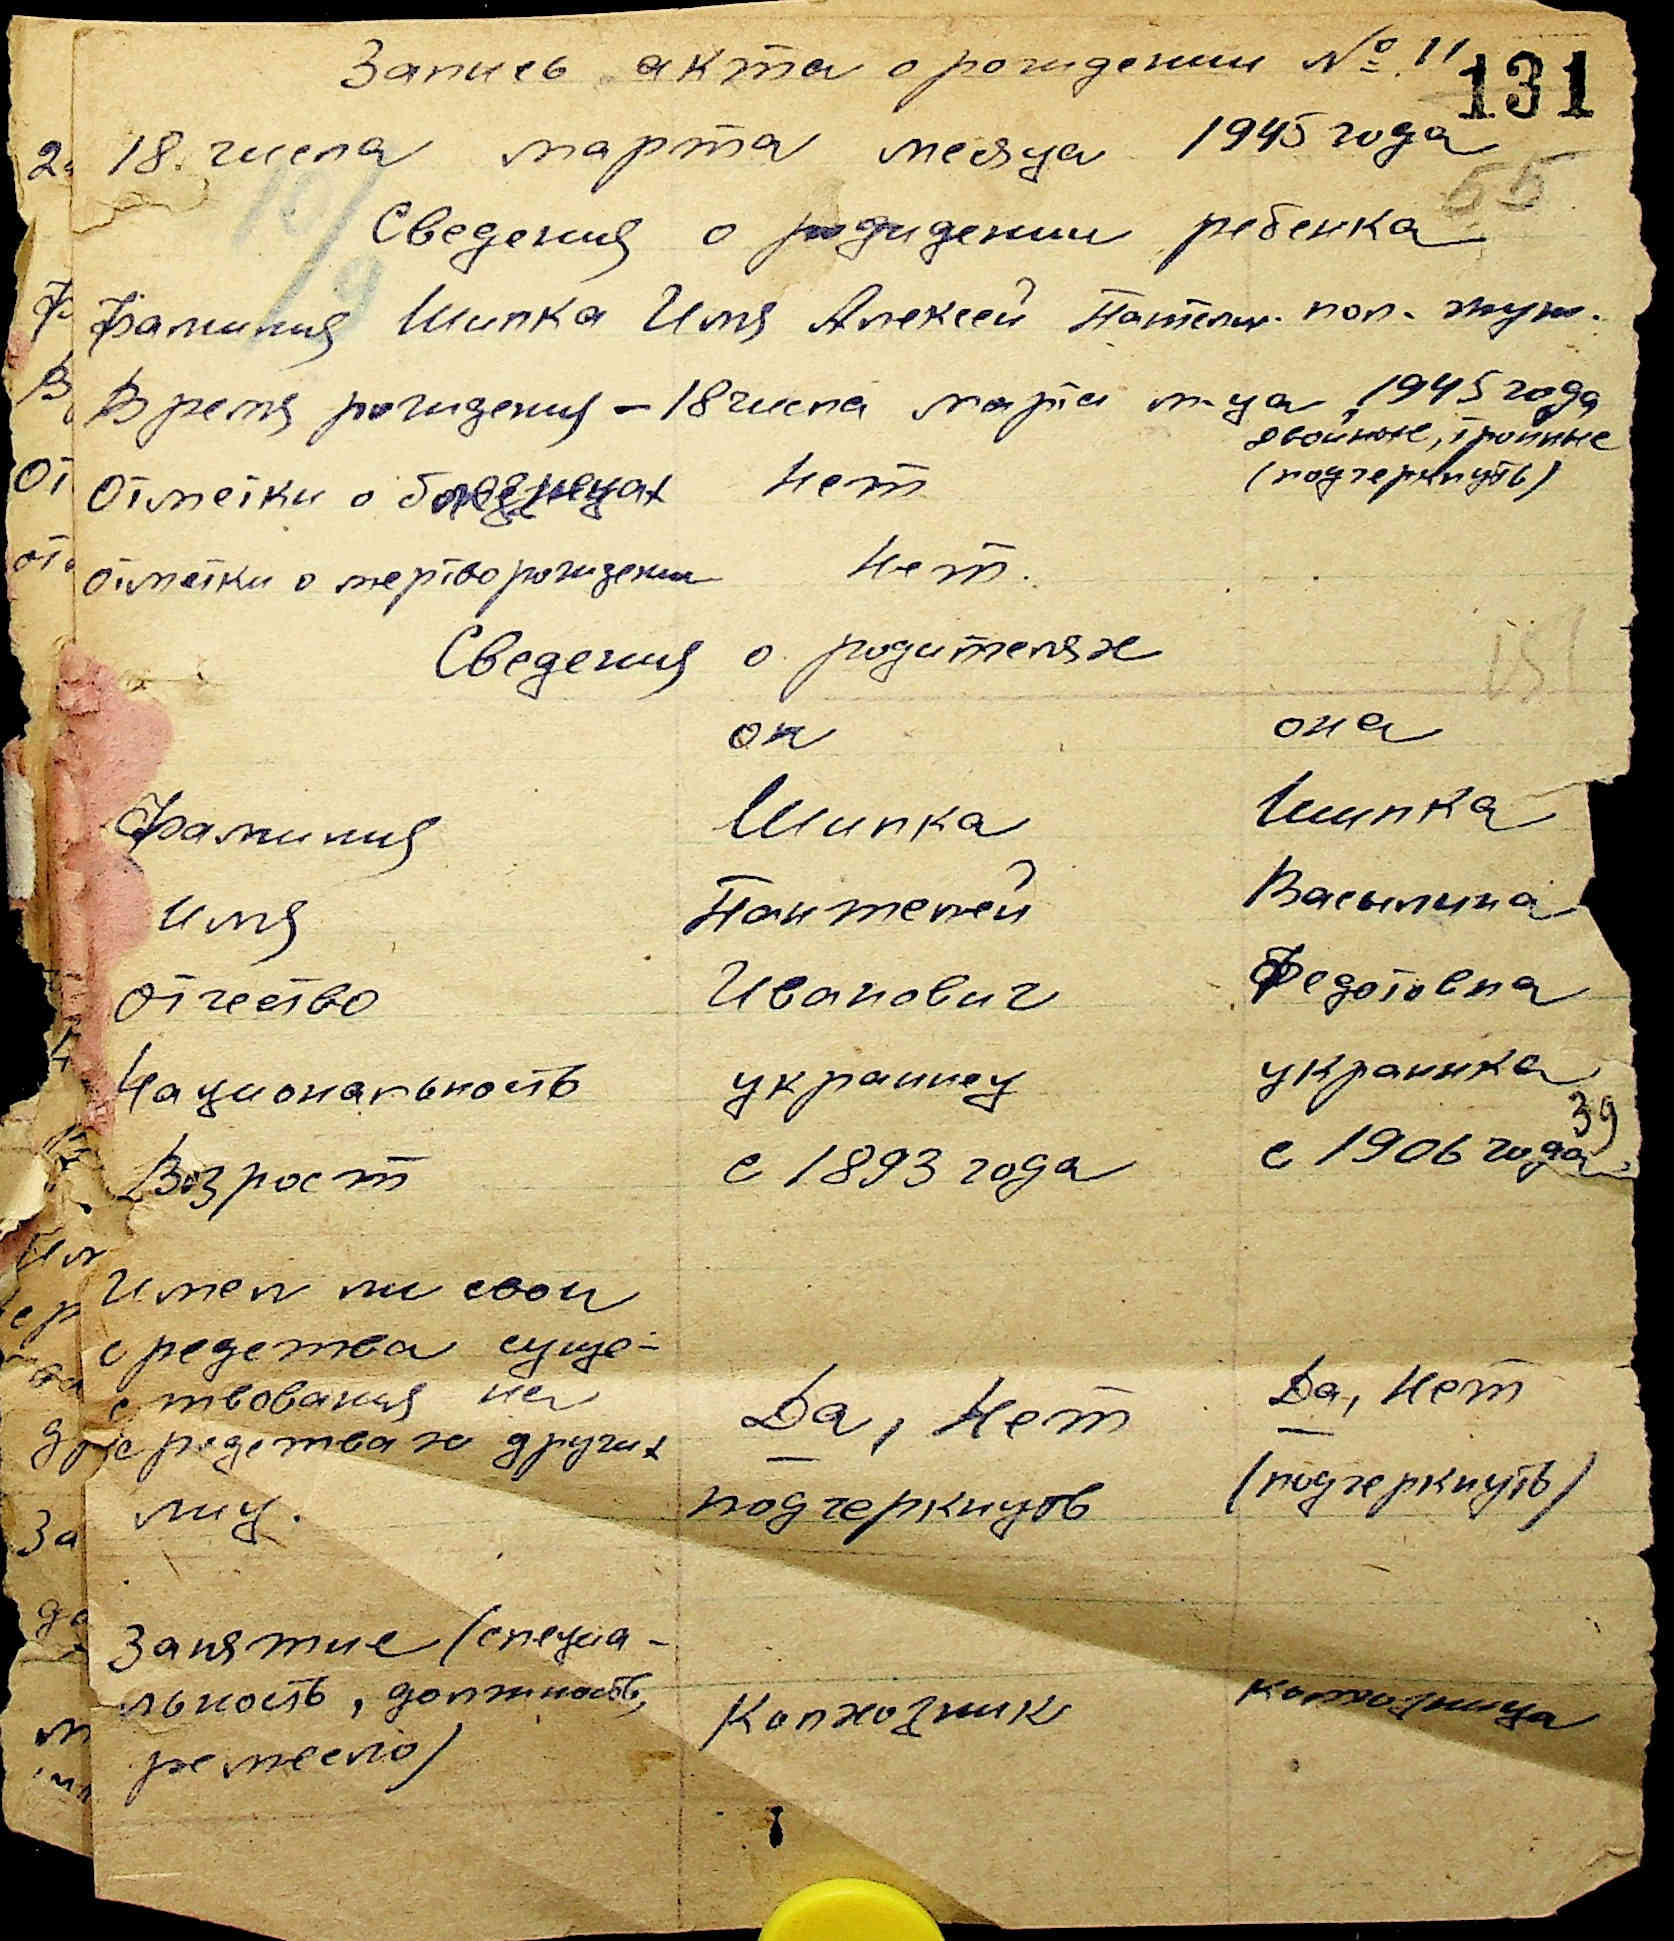 Запись акта о рождении № 11
131
18 числа марта месяца 1945 года
55
Сведения о рождении ребенка
10/9
Фамилия Шипка Имя Алексей Пантелм. пол. муж.
Время рождения - 18 числа марта м-ца 1945 года
двойные, тройные
Отметки о близнецах Нет (подчеркнуть)
отметки о мертворождении Нет.
Сведения о родителях
131
он она
Фамилия Шипка Шипка
Имя Пантелей Васылина
Отчество Иванович Федотовна
Национальность украинец украинка
39
Возрост с 1893 года с 1906 года
Имел ли свои
средства суще-
ствования на
Да, Нет Да, Нет
средствах других
лиц. подчеркнуть (подчеркнуть)
Занятие (специа-
льность, должность, Колхозник колхозница
ремесло)